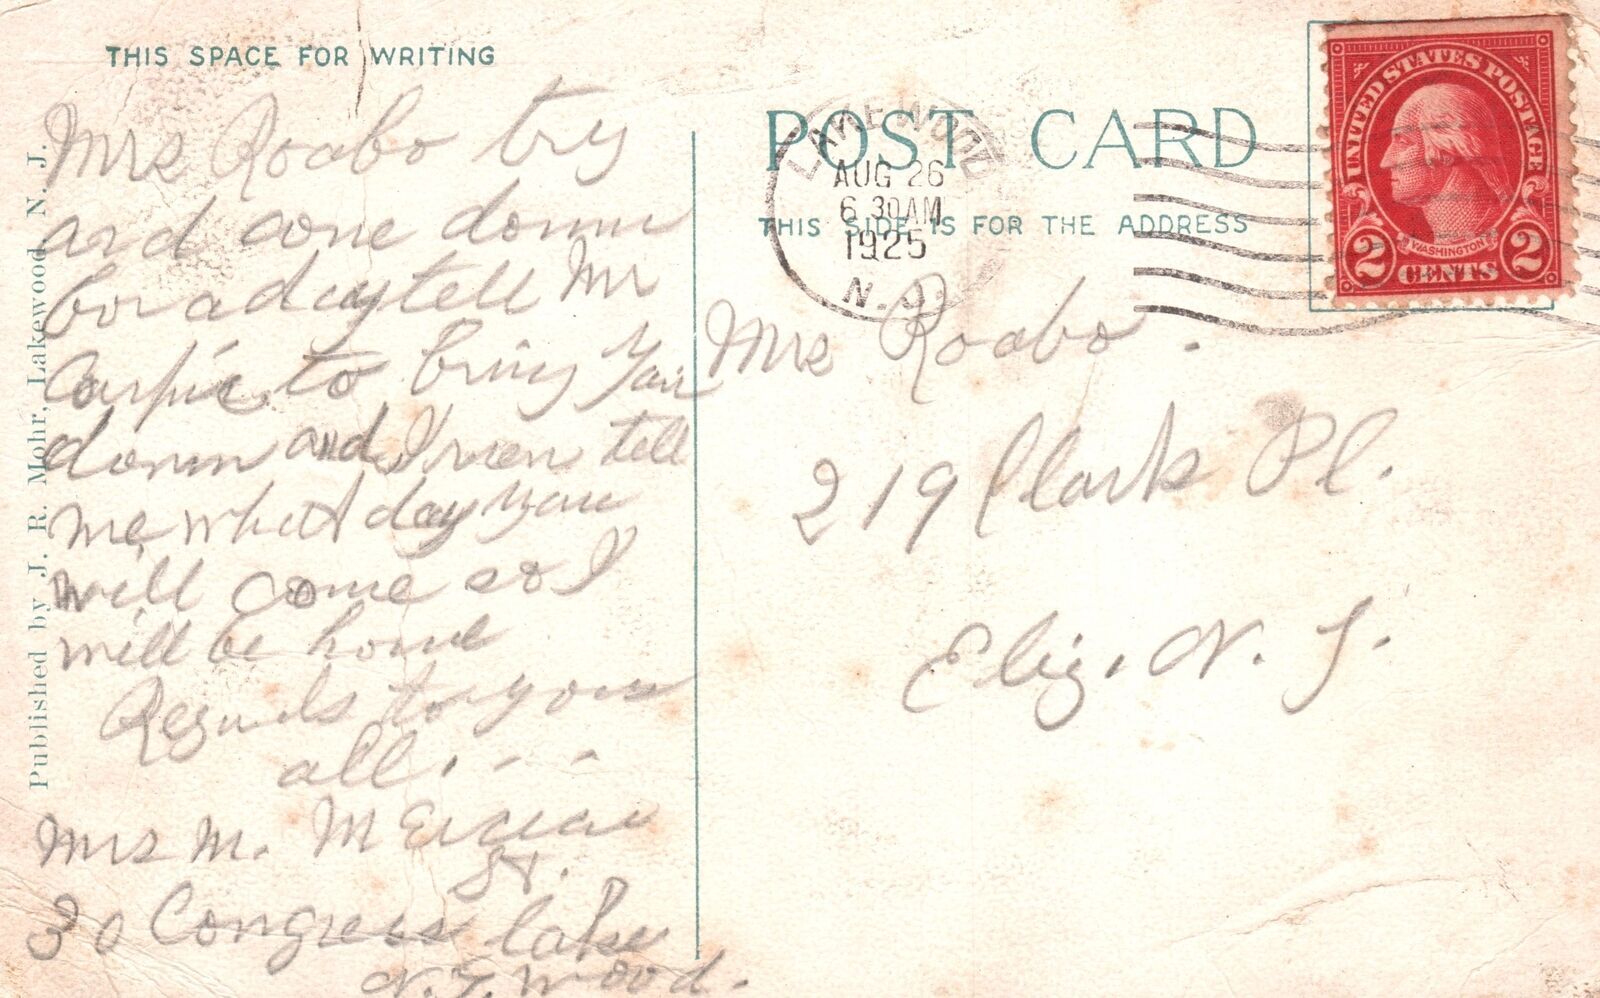 THIS SPACE FOR WRITING
Mrs Roabo try
and come down
for a day tell Mr
to bring you
down and
me what day you
will come so I
will be home
Regards to you
all . - -
Mrs M.
St.
30 Congress Lake
N.J. Wood.
Published by J. R. Mohr, Lakewood, N. J.
POST CARD
THIS SIDE IS FOR THE ADDRESS
LAKEWOOD
AUG 26
6 30AM
1925
N. J.
UNITED STATES POSTAGE
WASHINGTON
2 CENTS 2
Mrs Roabo.
219 Clark Pl.
Eliz. N. J.